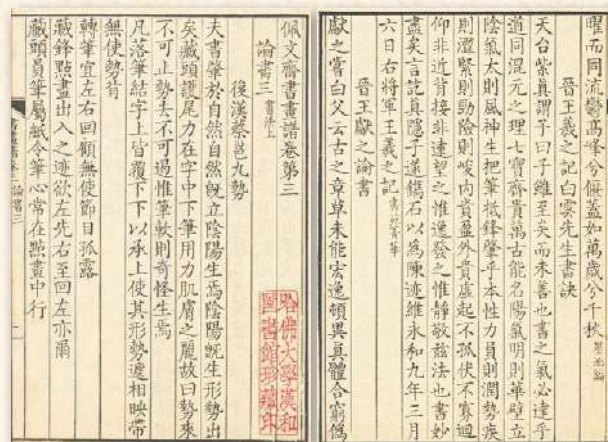 曜而同流鬱高峰兮偃蓋如萬歲兮千秋 墨池編
晉王羲之記白雲先生書訣
天台紫真謂予曰子雖至矣而未善也書之氣必達乎
道同混元之理七寶齊貴萬古能名陽氣明則華壁立
陰氣太則風神生把筆抵鋒肇乎本性力員則潤勢疾
則澀緊則勁險則峻內貴盈外貴虛起不孤伏不寡迴
仰非近背接非遠望之惟逸發之惟靜敬茲法也書妙
盡矣言訖真隱子遂鐫石以為陳迹維永和九年三月
六日右將軍王羲之記 書苑菁華
晉王獻之論書
獻之嘗白父云古之章草未能宏逸頓異真體合窮偽
佩文齋書畫譜卷第三
論書三 書法上
後漢蔡邕九勢
夫書肇於自然自然既立陰陽生焉陰陽既生形勢出
矣藏頭護尾力在字中下筆用力肌膚之麗故曰勢來
不可止勢去不可遏惟筆軟則奇怪生焉
凡落筆結字上皆覆下下以承上使其形勢遞相映帶
無使勢背
轉筆宜左右回顧無使節目孤露
藏鋒點畫出入之迹欲左先右至回左亦爾
藏頭員筆屬紙令筆心常在點畫中行
論書三
哈佛大學漢和
圖書館珍藏印